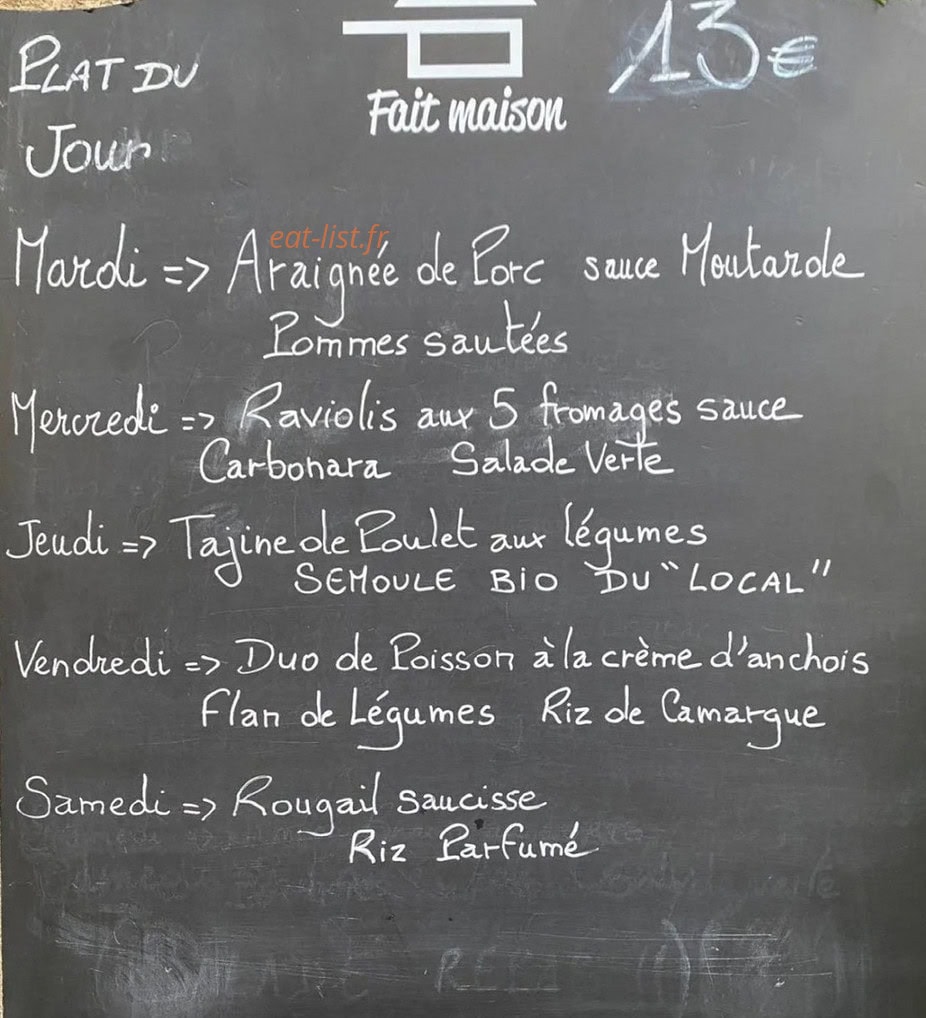 PLAT DU
Jour
Fait maison
13€
eat-list.fr
Mardi => Araignée de Porc sauce Moutarde
Pommes sautées
Mercredi => Raviolis aux 5 fromages sauce
Carbonara Salade Verte
Jeudi => Tajine de Poulet aux légumes
SEMOULE BIO DU "LOCAL"
Vendredi => Duo de Poisson à la crème d'anchois
Flan de Légumes Riz de Camargue
Samedi => Rougail saucisse
Riz Parfumé